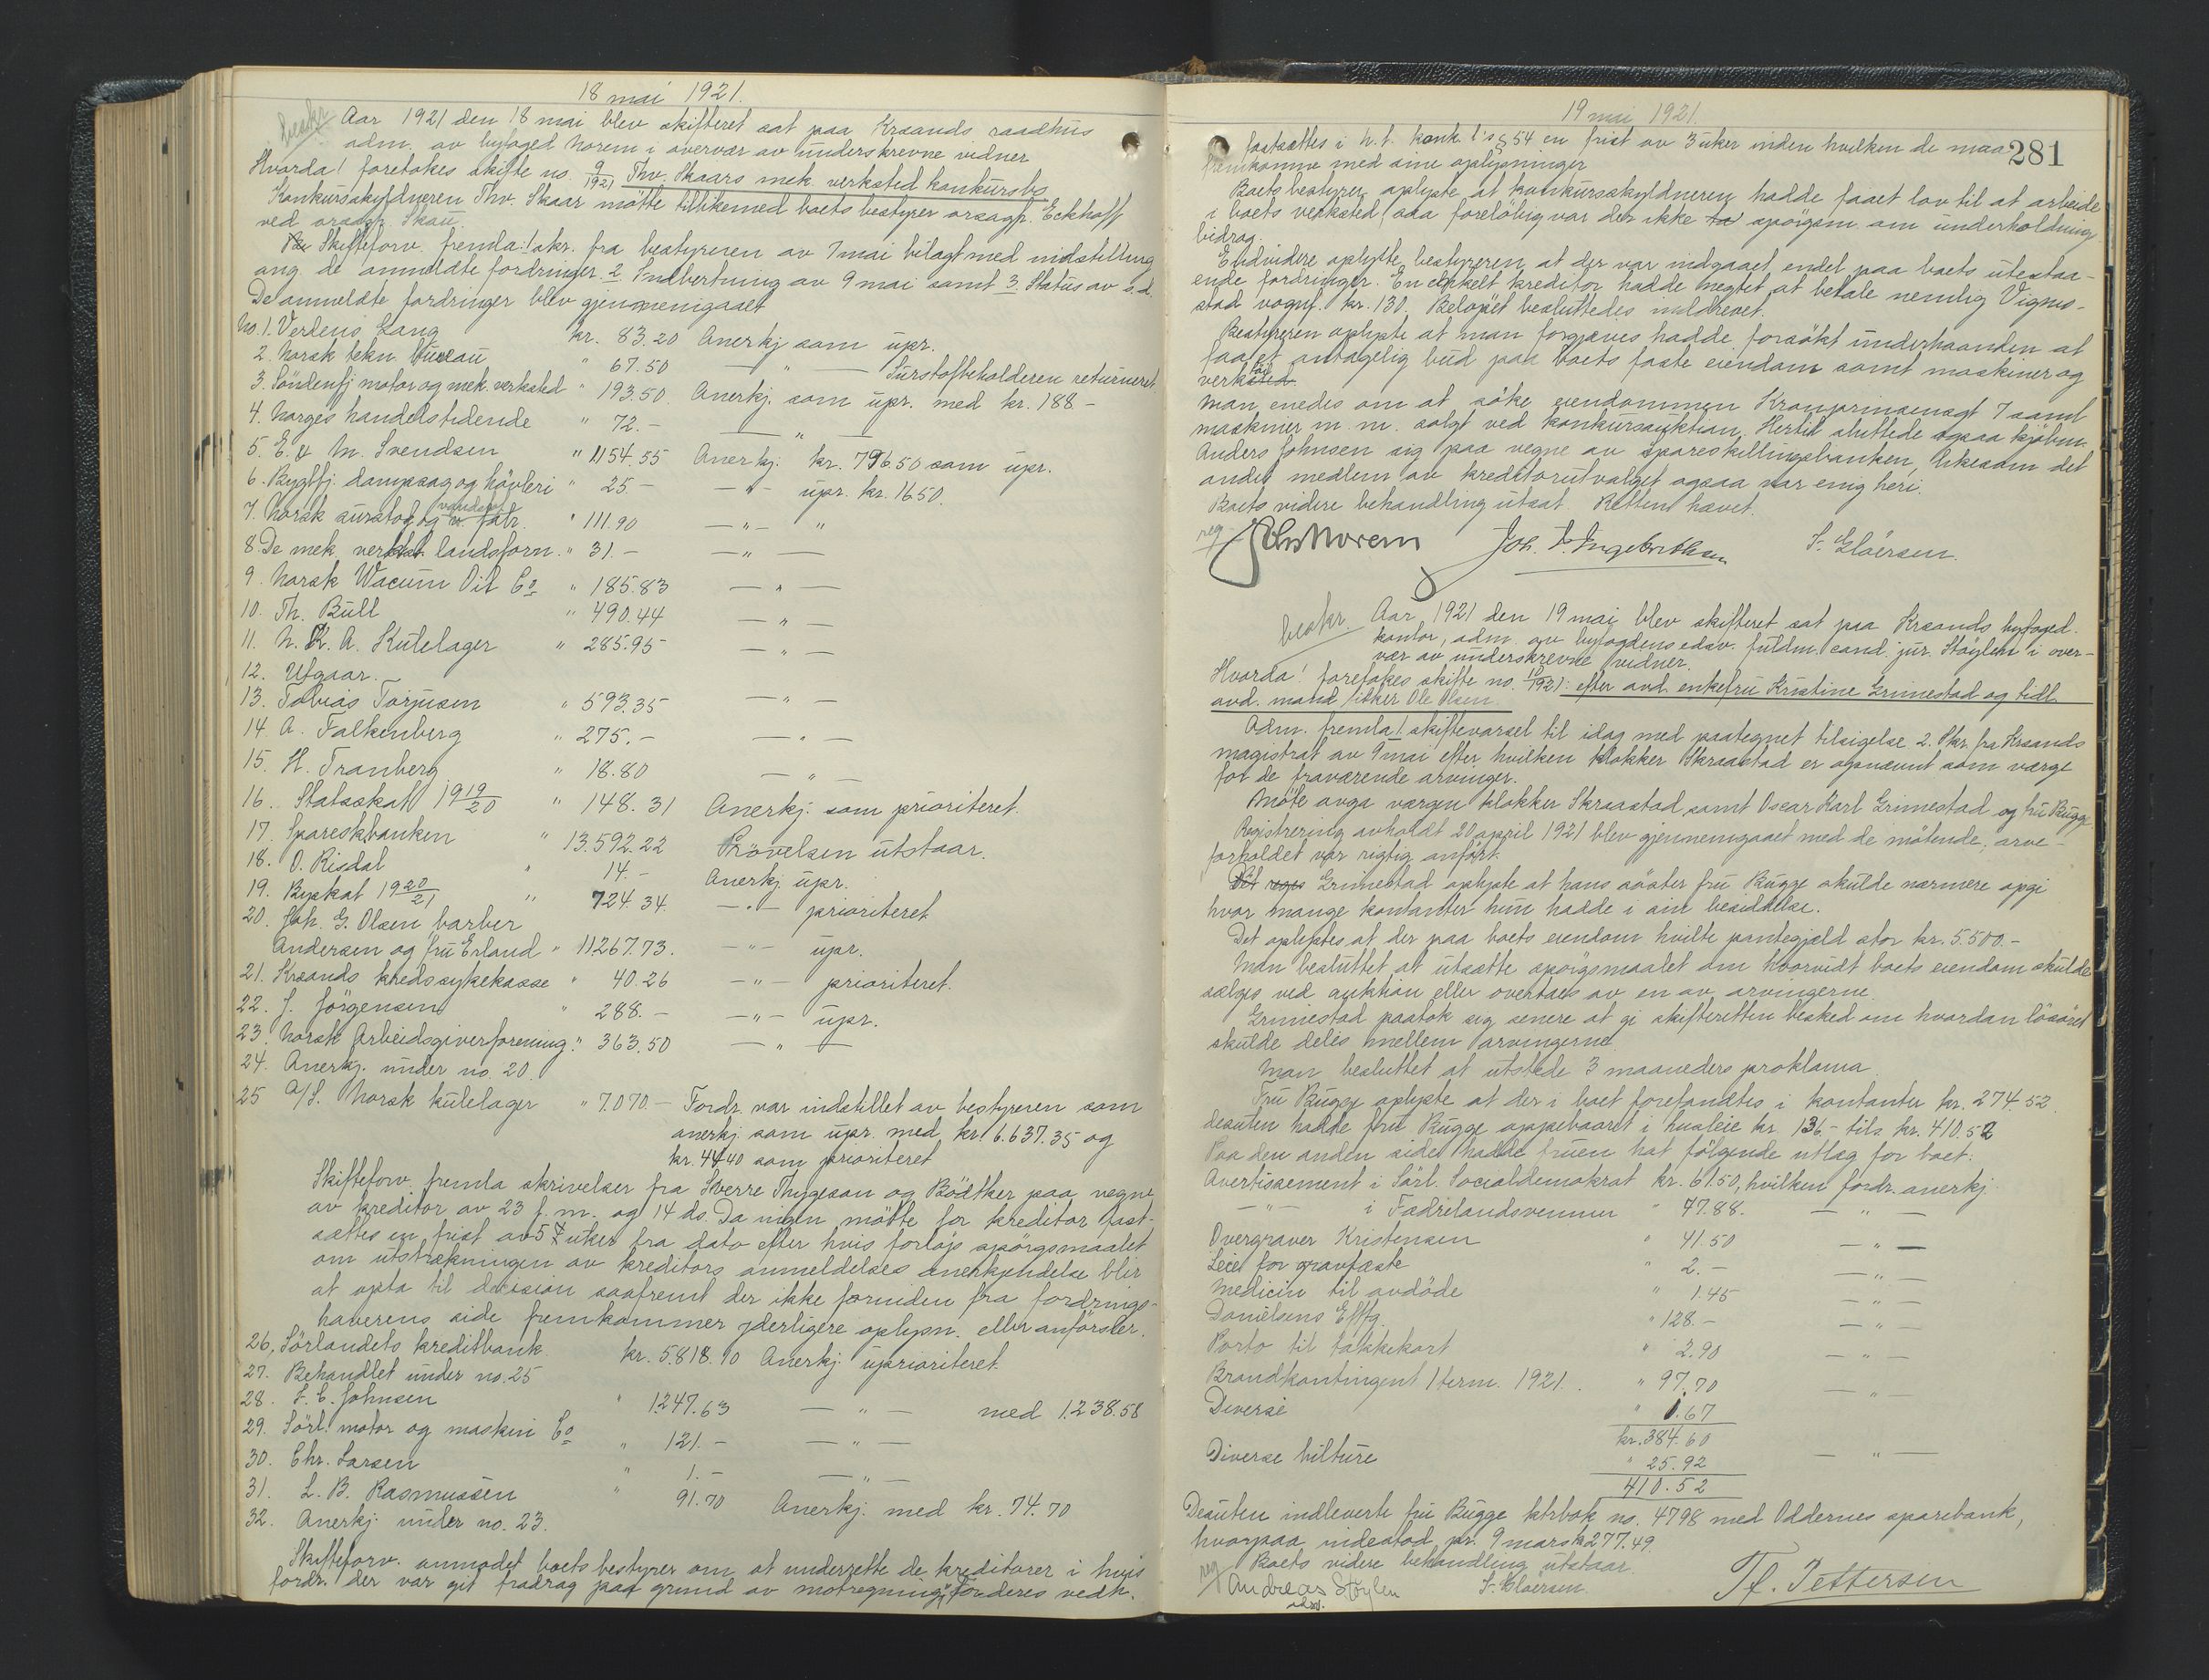 18 mai 1921.
beskr.
Aar 1921 den 18 mai blev skifteret sat paa Krsands raadhus
adm. av byfoged Norem i overvær av underskrevne vidner
Hvorda! foretokes skifte no. 9/1921 Thv. Skaars mek. verksted konkursbo.
Konkursskyldneren Thv. Skaar mötte tillikemed boets bestyrer orsagf. Eckhoff
ved orsagf. Skau.
Skifteforv. fremla: 1 skr. fra bestyreren av 7 mai bilagt med indstilling
ang. de anmeldte fordringer. 2. Indberetning av 9 mai samt 3. Status av s.d.
De anmeldte fordringer blev gjennemgaaet
No. 1. Verdens Gang kr. 83.20 Anerkj som upr.
2. Norsk tekn. bureau " 67.50 — " — Surstofbeholderen returneret
3. Söndenfj motor og mek. verksted " 193.50. Anerkj. som upr. med kr. 188 -
4. Norges handelstidende " 72.- — " —
5. E. & M. Svendsen " 1154.55 Anerkj. kr. 796.50 som upr.
6. Bygtfj. dampsag og hövleri " 25 - — " — upr. kr. 16.50.
7. Norsk surstof og vandstof fabr. " 111.90 — " — "
8. De mek. verkst. landsforn. " 31.- — " —
9. Norsk Wacum Oil Co " 185.83 — " —
10. Th. Bull " 490.44 — " —
11. N. K. A. Kulelager " 285.95 — " —
12. Utgaar.
13. Tobias Torjusen " 593.35 — " —
14. A. Falkenberg " 275.- — " —
15. H. Tranberg " 18.80 — " —
16. Statsskat 1919/20 " 148.31 Anerkj. som prioriteret.
17. Spareskbanken " 13.592.22 Prövelsen utstaar.
18. O. Risdal " 14.- Anerkj. upr.
19. Byskat 1920/21 " 724.34. — " — prioriteret
20. Joh. G. Olsen, barber
Andersen og fru Erland " 11267.73. — " — upr.
21. Krsands kredssykekasse " 40.26 — " — prioriteret.
22. J. Jörgensen " 288.- — " — upr.
23. Norsk Arbeidsgiverforening. " 363.50 — " —
24. Anerkj. under no. 20.
25 A/S. Norsk kulelager " 7.070 - Fordr. var indstillet av bestyreren som
anerkj. som upr. med kr. 6.637.35 og
kr. 44.40 som prioriteret
Skifteforv. fremla skrivelser fra Sverre Thygeson og Bödtker paa vegne
av kreditor av 23 f.m. og 14 ds. Da ingen mötte for kreditor fast-
sættes en frist av 5 uker fra dato efter hvis forlöp spörgsmaalet
om utstrækningen av kreditors anmeldelses anerkjendelse blir
at opta til decision saafremt der ikke forinden fra fordrings-
haverens side fremkommer yderligere oplysn. eller anförsler.
26. Sörlandets kreditbank kr. 5.818.10 Anerkj. uprioriteret.
27. Behandlet under no. 25
28. S. C. Johnsen " 1.247.63 — " — med 1.238.58
29. Sörl. motor og maskin Co " 121.- — " —
30. Chr. Larsen " 1.- — " —
31. L. B. Rasmussen " 91.70 Anerkj. med kr. 74.70
32. Anerkj. under no. 23.
Skifteforv. anmodet boets bestyrer om at underrette de kreditorer i hvis
fordr. der var git fradrag paa grund av motregning. For deres vedk.
19 mai 1921.
281
fastsættes i h.t. konk. l's § 54 en frist av 3 uker inden hvilken de maa
fremkomme med sine oplysninger
Boets bestyrer oplyste at konkursskyldneren hadde faaet lov til at arbeide
i boets verksted saa foreløbig var der ikke spörgsm. om underholdnings
bidrag.
Endvidere oplyste bestyreren at der var indgaaet endel paa boets utestaa-
ende fordringer. En enkelt kreditor hadde negtet at betale nemlig Vignes-
stad vognf. kr. 130. Belöpet besluttedes inddrevet.
Bestyreren oplyste at man forgjæves hadde forsökt underhaanden at
faa et antagelig bud paa boets faste eiendom samt maskiner og
verktöi.
Man enedes om at söke eiendommen Kronprinsensgt 7 samt
maskiner m.m. solgt ved konkursauktion. Hertil sluttede ogsaa kjöbm.
Anders Johnsen sig paa vegne av spareskillingsbanken, likesom det
andet medlem av kreditorutvalget ogsaa var enig heri.
Boets videre behandling utsat. Retten hævet.
reg
Norem Joh. F. Ingebrethsen S. Glöersen.
beskr.
Aar 1921 den 19 mai blev skifteret sat paa Krsands byfoged-
kontor, adm. av byfogdens edsv. fuldm. cand. jur. Stöylen i over-
vær av underskrevne vidner.
Hvorda! foretokes skifte no. 11/1921: efter avd. enkefru Kristine Grimestad og tidl.
avd. mand fisker Ole Olsen.
Adm. fremla 1. skiftevarsel til idag med paategnet tilsigelse 2. Skr. fra Krsands
magistrat av 9 mai efter hvilken klokker Skraastad er opnævnt som værge
for de fraværende arvinger.
Møte avga værgen klokker Skraastad samt Oscar Karl Grimestad og fru Bugge.
Registrering avholdt 20 april 1921 blev gjennemgaaet med de mötende, arve-
forholdet var rigtig anfört.
Grimestad oplyste at hans söster fru Bugge skulde nærmere opgi
hvor mange kontanter hun hadde i sin besiddelse.
Det oplystes at der paa boets eiendom hvilte pantegjæld stor kr. 5.500.-
Man besluttet at utsætte spörgsmaalet om hvorvidt boets eiendom skulde
sælges ved auktion eller overtaes av en av arvingerne.
Grimestad paatok sig senere at gi skifteretten besked om hvordan lösöret
skulde deles mellem arvingerne.
Man besluttet at utstede 3 maaneders proklama.
Fru Bugge oplyste at der i boet forefandtes i kontanter kr. 274.52
desuten hadde fru Bugge oppebaaret i husleie kr. 136.- tils. kr. 410.52
Paa den anden side hadde fruen hat fölgende utlæg for boet:
Avertissement i Sörl. Socialdemokrat kr. 61.50, hvilken fordr. anerkj.
— " — i Fædrelandsvennen " 47.88. — " —
Overgraver Kristensen " 41.50 — " —
Leie for gravfæste " 2.- — " —
Medicin til avdöde " 1.45 — " —
Danielsens Eftfg. " 128.- — " —
Porto til takkekort " 2.90 — " —
Brandkontingent 1 term. 1921. " 97.70 — " —
Diverse " 1.67
kr. 384.60
Diverse bilture " 25.92 — " —
410.52
Desuten indleverte fru Bugge ktrbok no. 4798 med Oddernes sparebank,
hvorpaa indestod pr. 9 mars kr. 277.49.
Boets videre behandling utstaar.
reg
Andreas Stöylen S. Glöersen. Tf. Pettersen
edsv.